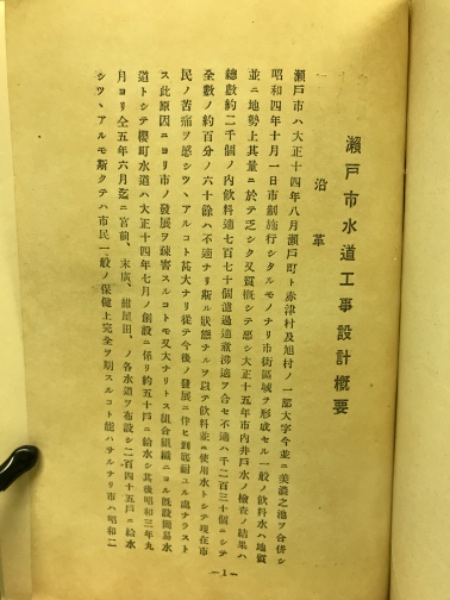 瀨戸市水道工事設計概要
一 沿革
瀨戸市ハ大正十四年八月瀨戸町ト赤津村及旭村ノ一部大字今並ニ美濃之池ヲ合併シ
昭和四年十月一日市制施行シタルモノナリ市街區域ヲ形成セル一般ノ飲料水ハ地質
並ニ地勢上其量ニ於テ乏シク又質概シテ惡シ大正十五年市内井戸水ノ檢査ノ結果ハ
總數約二千個ノ内飲料適七百七十個濾過適煮沸適ヲ合セ不適ハ千二百三十個ニシテ
全數ノ約百分ノ六十餘ハ不適ナリ斯ル狀態ナルヲ以テ飲料並ニ使用水トシテ現在市
民ノ苦痛ヲ感シツヽアルコト甚大ナリ從テ今後ノ發展ニ伴ヒ到底耐ユル處ナラスト
ス此原因ニヨリ市ノ發展ヲ疎害スルコトモ又大ナリトス組合組織ニヨル旣設簡易水
道トシテ櫻町水道ハ大正十四年七月ノ創設ニ係リ約五十戸ニ給水シ其後昭和三年九
月ヨリ仝五年六月迄ニ宮前、末廣、紺屋田、ノ各水道ヲ布設シ二百四十五戸ニ給水
シツヽアルモ斯クテハ市民一般ノ保健上完全ヲ期スルコト能ハサルナリ市ハ昭和二
—1—